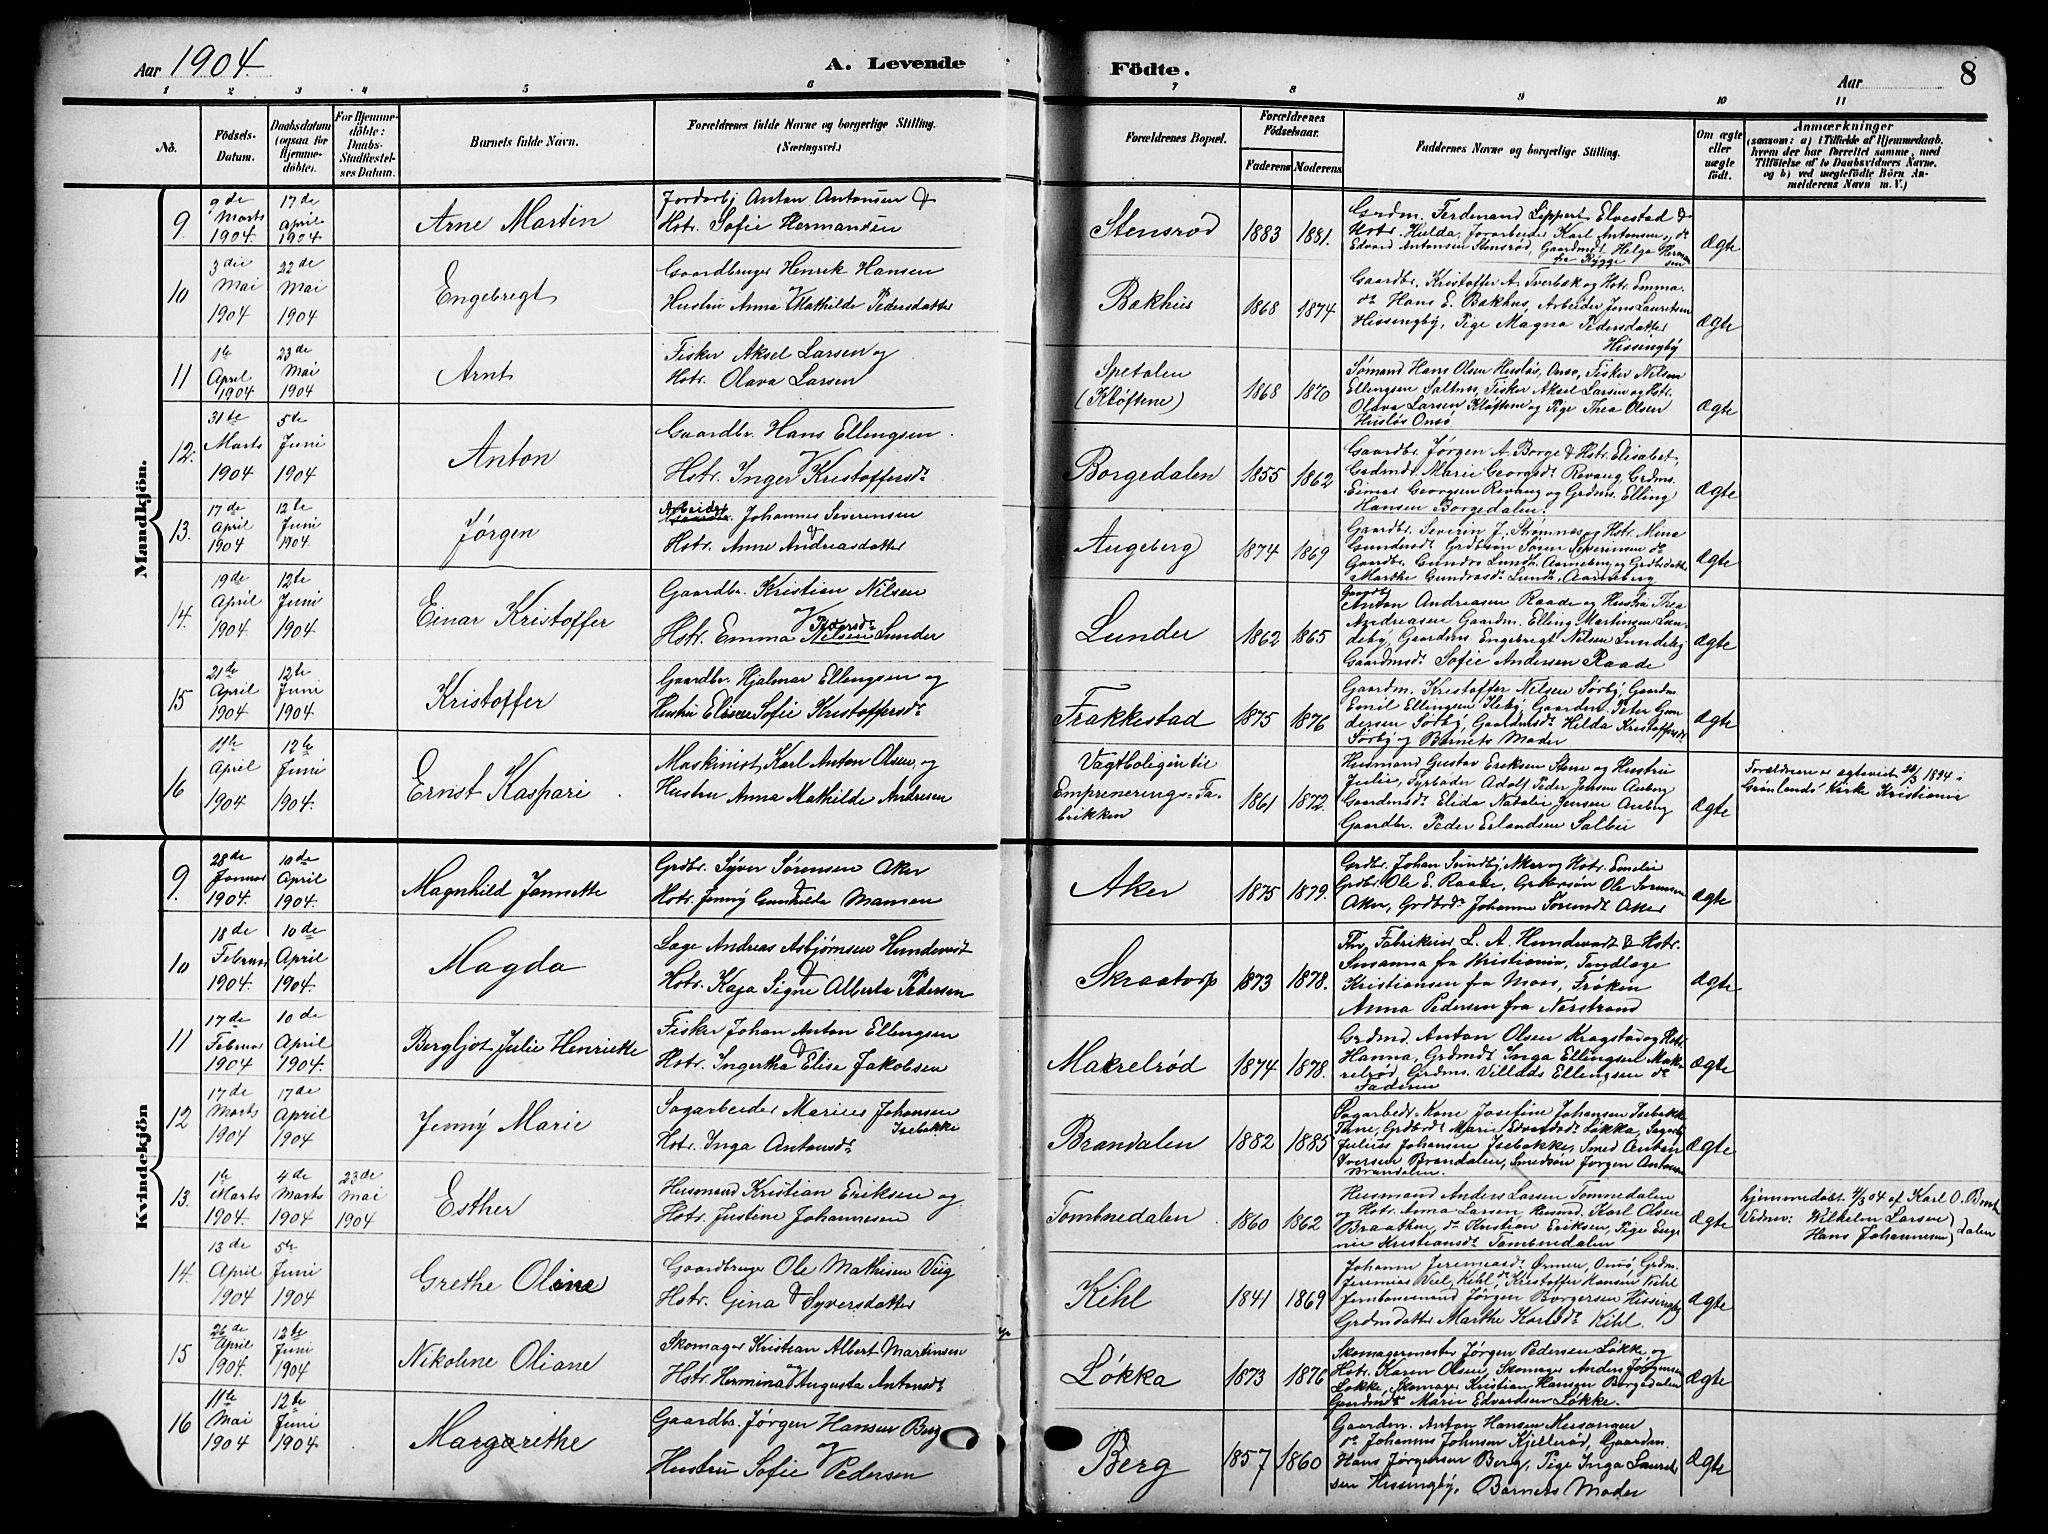 Aar 1904.
A. Levende
Födte.
Aar
8
1 2 3 4 5 6 7 8 9 10 11
No.
Födsels-
Datum.
Daabsdatum
(ogsaa for
Hjemme-
döbte).
For Hjemme-
döbte:
Daabs-
Stadfæstel-
ses Datum.
Barnets fulde Navn.
Forældrenes fulde Navne og borgerlige Stilling.
(Næringsvei.)
Forældrenes Bopæl.
Forældrenes
Födselsaar.
Faderens
Moderens
Faddernes Navne og borgerlige Stilling.
Om ægte
eller
uægte
født.
Anmærkninger
(saasom: a) i Tilfælde af Hjemmedaab,
hvem der har forrettet samme, med
Tilföielse af to Daabsvidners Navne,
og b) ved uægtefödte Börn An-
melderens Navn m. V.)
Mandkjön.
9
9de Marts 1904.
17de april 1904
Arne Martin
Jordarbj Anton Antonsen &
Hstr. Sofie Hermansen
Stensrød
1883 1881.
Grdm. Ferdinand Lippert Elvestad &
Hstr. Hilda, Jorarbeider Karl Antonsen, do
Edvard Antonsen Stensrød, Gaardmdt Helga Herman
sen fra Rygge
Ægte
10
3die Mai 1904
22de Mai 1904
Engebregt
Gaardbruger Henrik Hansen
& Hustru Anna Mathilde Pedersdatter
Bakhus
1868 1874
Gaardbr. Kristoffer A. Tverbæk og Hstr. Emma.
do Hans E. Bakhus, Arbeider Jens Lauritsen
Hissingby, Pige Magna Pedersdatter
Hissingby
Ægte
11
1te April 1904
23de Mai 1904
Arnt
Fisker Aksel Larsen og
Hstr. Olava Larsen
Spetalen
(Kløftene)
1868 1870
Sømand Hans Olsen Husløs, Onsø, Fisker Nilsen
Ellingsen Saltnes, Fisker Aksel Larsen og Hstr.
Olava Larsen Kløftene og Pige Thea Olsen
Husløs Onsø
Ægte
12.
31te Marts 1904
5te Juni 1904
Anton
Gaardbr. Hans Ellingsen
& Hstr. Inger Kristoffersdt
Borgedalen
1855 1862
Gaardbr. Jørgen A. Borge & Hstr. Elisabet,
Grdmdt. Marie Georgsdt Revaug Grdms.
Einar Georgsen Revaug og Grdms. Elling
Hansen Borgedalen.
Ægte
13.
17de April 1904
12te Juni 1904.
Jørgen
Arbeider Johannes Severinsen
& Hstr. Anne Andreasdatter
Augeberg
1874 1869
Gaardbr. Severin J. Strømnes og Hstr. Mina
Gundersdt Grdbsøn Søren Severinsen do
Gaardbr. Gundro Lundh, Aarneberg og Grdbsdatter
Marthe Gundrosdt Lundh, Aarneberg
Ægte
14.
19de April 1904
12te Juni 1904
Einar Kristoffer
Gaardbr. Kristian Nilsen
& Hstr. Emma Pedersdt Nilsen Lunder
Lunder
1862 1865
Gaardbr Anton Andreasen Raade og Hustru Thea
Andreasen Gaardm. Elling Martinsen Lun-
deby, Gaardms. Engebregt Nilsen Lundeby
Gaardmsdt. Sofie Andersen Raade
Ægte
15
21de April 1904
12te Juni 1904
Kristoffer
Gaardbr. Hjalmar Ellingsen og
Hustru Elisen Sofie Kristoffersdt
Frakkestad
1875 1876
Gaardm. Kristoffer Nilsen Sørby, Gaardm.
Emil Ellingsen Heby, Gaardm. Peter Gun
dersen Sørby, Gaardmsdt. Hilda Kristoffersdt.
Sørby og Barnets Moder
Ægte
16
11te April 1904
12te Juni 1904.
Ernst Kaspari
Maskinist Karl Anton Olsen og
Hustru Anna Mathilde Andresen
Vagtboligen til
Emprenerings-Fa-
brikken
1861 1872.
Husmand Gustav Eriksen Stene og Hustru
Julie, Fyrbøder Adolf Peder Jensen Aaberg
Gaardmsdt. Elida Natalie Jensen Aaberg
Gaardbr. Peder Erlandsen Salbu
Ægte
Forældrene er ægteviet 26/3 1894 i
Grønlands Kirke Kristiania
Kvindekjön
9.
28de Januar 1904.
10de April 1904.
Magnhild Jannette
Grdbr. Syver Sørensen Aker
& Hstr. Jenny Gunhilde Mansen
Aker
1875 1879.
Grdbr. Johan Sundby, Aker og Hstr. Emelie
Grdbr. Ole E. Raade, Grdbrsøn Ole Sørensen
Aker, Grdbrdt Johanne Sørensdt Aker
Ægte
10
18de Februar 1904.
10de April 1904.
Magda
Læge Andreas Asbjørnsen Hundevadt
& Hstr. Kaja Signe Alberta Pedersen
Skraatorp
1873 1878.
Thv. Fabrikeier L. A. Hundevadt & Hstr.
Susanna fra Kristiania, Tandlæge
Kristiansen fra Moss, Frøken
Anna Pedersen fra Nerstrand
Ægte
11
17de Februar 1904
10de April 1904.
Bergljot Julie Henriette
Fisker Johan Anton Ellingsen
& Hstr. Ingertha Elise Jakobsen
Makrelrød
1874 1878.
Grdmd. Anton Olsen Kragstad og Hstr.
Hanna, Grdmdt Inga Ellingsen Mak-
relrød, Grdms. Villads Ellingsen do
Faderen
Ægte
12
17de Marts 1904
17de April 1904
Jenny Marie
Sagarbeider Marius Johansen
Isebakke
Hstr. Inga Antonsdt
Brandalen
1882 1885
Sagarbeidr. Kone Josefine Johansen Isebakke
Tune, Grdbrdt Marie Edvardsdt Løkka, Sagarb.
Julius Johansen Isebakke, Smed Anton
Iversen Brandalen, Smedsøn Jørgen Antonsen
Brandalen.
Ægte
13.
1te Marts 1904
4de Marts 1904
23de Mai 1904
Esther
Husmand Kristian Eriksen og
Hstr. Justine Johannesen
Tombnedalen
1860 1862
Husmand Anders Larsen Tomnedalen
og Hstr. Anna Larsen Husmd. Karl Olsen
Braatken, do Kristian Eriksen, Pige Euge
nie Kristiansdt Tombnedalen
Ægte
hjemmedøbt 4/3 04 af Karl O. Bratt-
Vidner: Wilhelm Larsen
Hans Johannesen dalen
14.
13de April 1904
5te Juni 1904
Grethe Oline
Gaardbruger Ole Mathisen Viig
& Hstr. Gina Syversdatter
Kihl
1841 1869
Johann Jeremiasdt Ørmen, Onsø, Grdm.
Jeremias Viel, Kihl, do Kristoffer Hansen Kihl
Jernbanemand Jørgen Borgersen Hissingby
Grdmdatter Marthe Karlsdt Kihl.
Ægte
15
26de April 1904.
12te Juni 1904
Nikoline Oliane
Skomager Kristian Albert Martinsen
og Hstr. Hermina Augusta Antonsdt
Løkka
1873 1876
Skomagermester Jørgen Pedersen Løkke og
Hstr. Karen Olsen, Skomager Anders Jørgensen
Løkke, Skomager Kristian Hansen Borgedalen
Gaardmdt Marie Edvardsen Løkke.
Ægte
16
11te Mai 1904
12te Juni 1904
Margrethe
Gaardbr. Jørgen Hansen Berg
& Hustru Sofie Pedersen
Berg
1857 1860
Gaardm. Anton Hansen Huseangen
do Johannes Johnsen Kjellerød, Gaardm.
Hans Jørgensen Berg, Pige Inga Laurit-
sen Hissingby, Barnets Moder
Ægte